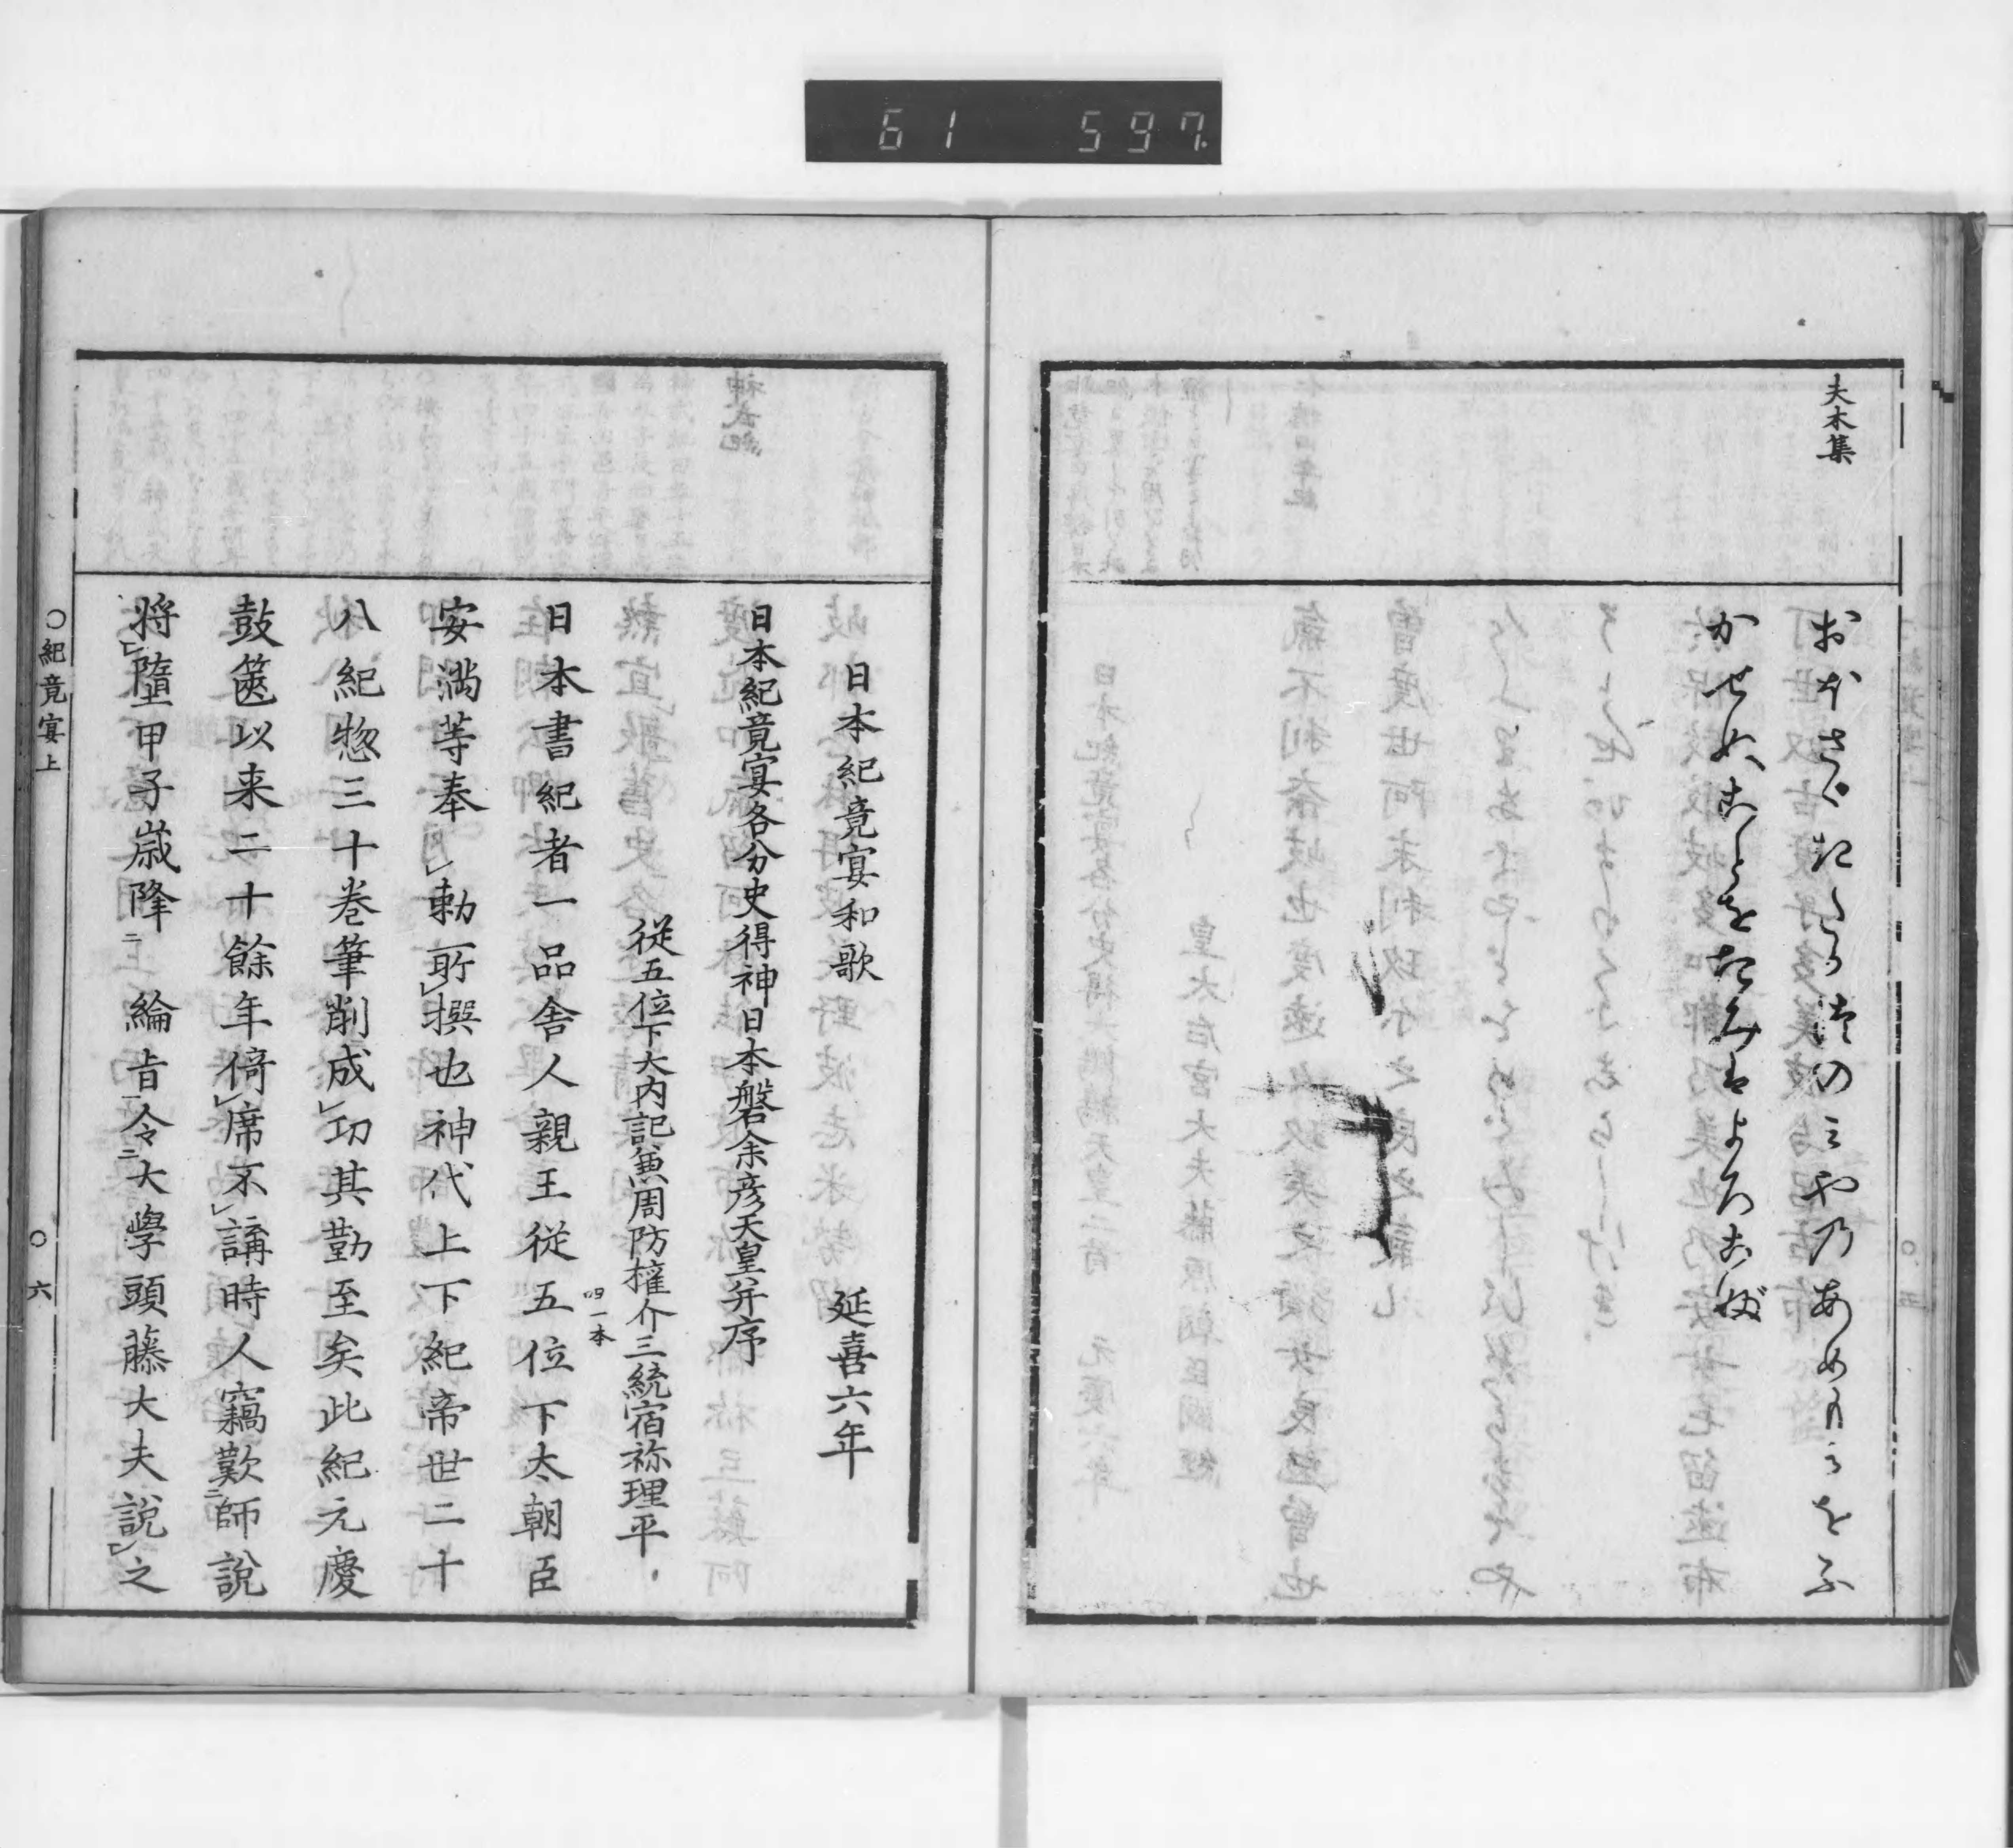 61 597.
夫木集
おほさゝきたかつのみやのあめもるをふ
かせぬことをたみはよろこぶ
日本紀竟宴和歌 延喜六年
日本紀竟宴各分史得神日本磐余彦天皇并序
従五位下大内記兼周防権介三統宿祢理平
四一本
日本書紀者一品舎人親王従五位下太朝臣
安満等奉㆑勅所㆑撰也神代上下紀帝世二十
八紀惣三十巻筆削成㆑功其勤至矣此紀元慶
鼓篋以来二十餘年倚㆑席不㆑講時人竊歎㆓師説
将㆑墮甲子歳降㆓綸旨㆒令㆓大學頭藤大夫説㆑之
○紀竟宴上 ○六